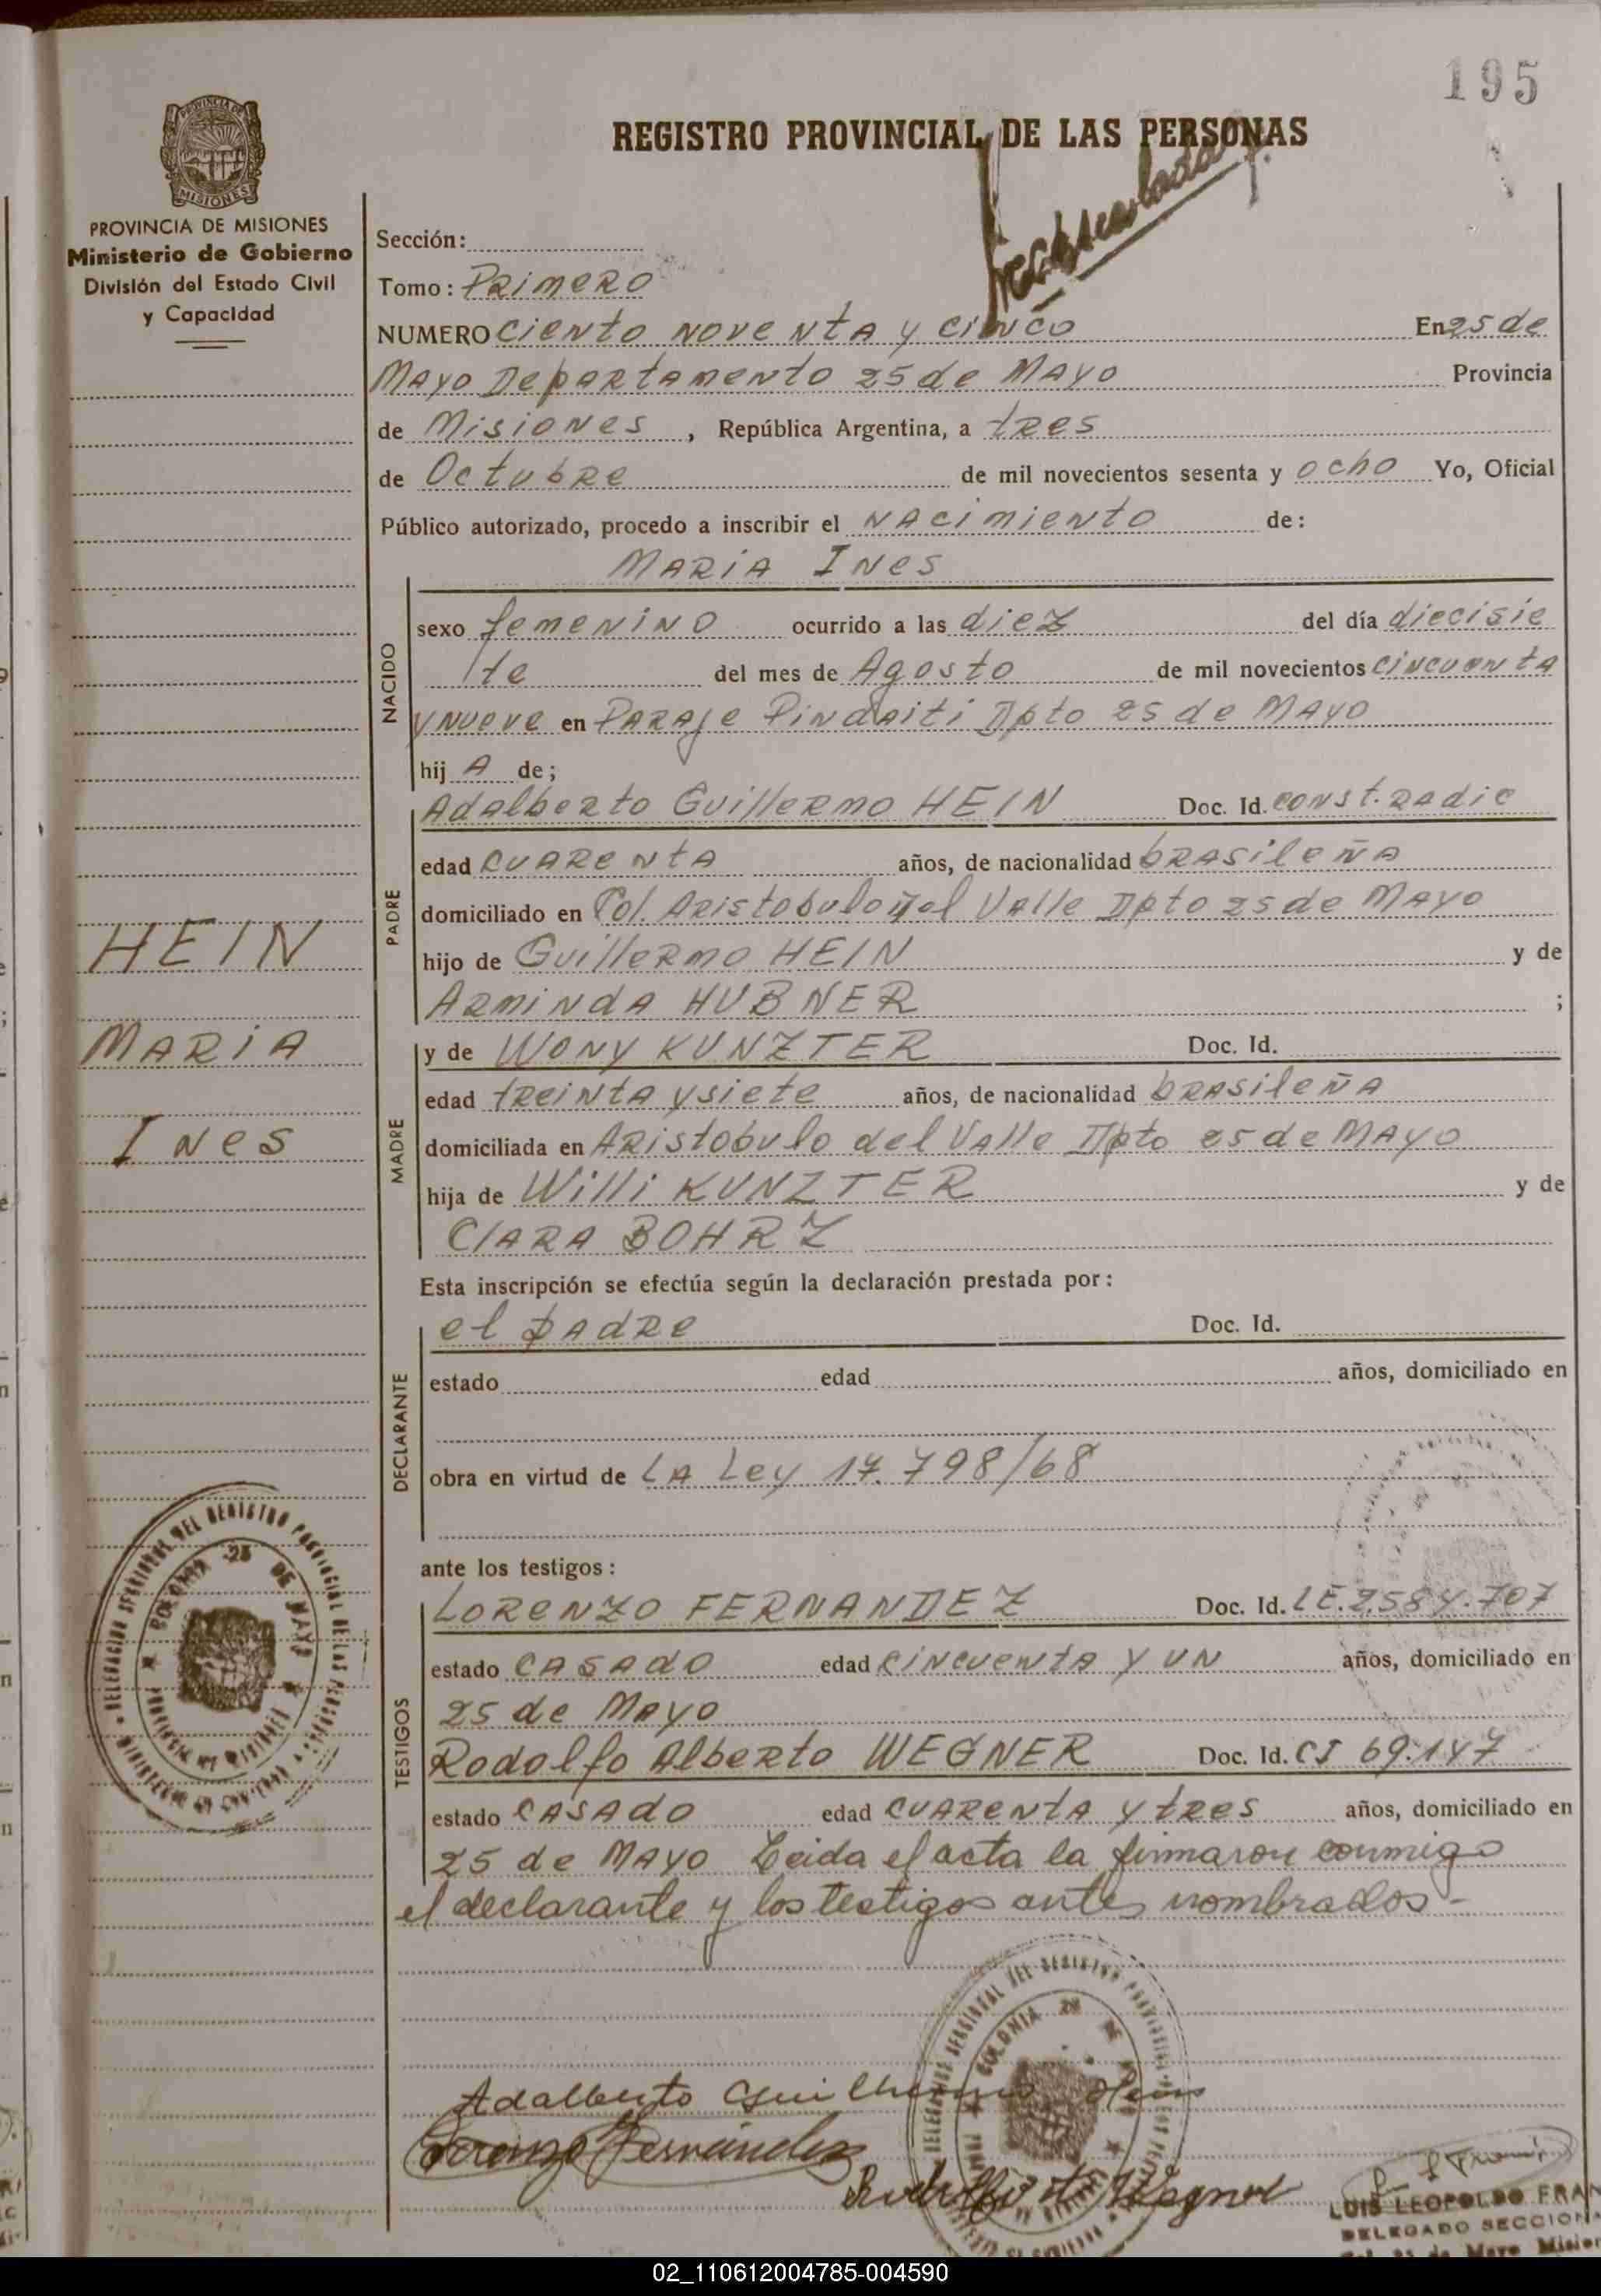 195
PROVINCIA DE
MISIONES
REGISTRO PROVINCIAL DE LAS PERSONAS
PROVINCIA DE MISIONES
Ministerio de Gobierno
División del Estado Civil
y Capacidad
Sección:
Tomo: Primero
NUMERO Ciento noventa y cinco En 25 de
Mayo Departamento 25 de Mayo Provincia
de Misiones, República Argentina, a tres
de Octubre de mil novecientos sesenta y ocho Yo, Oficial
Público autorizado, procedo a inscribir el nacimiento de:
Maria Ines
NACIDO
sexo femenino ocurrido a las diez del día diecisie
/te del mes de Agosto de mil novecientos cincuenta
y nueve en Paraje Pindaiti Dpto 25 de Mayo
hij A de;
PADRE
Adalberto Guillermo HEIN Doc. Id. const. radic
edad cuarenta años, de nacionalidad brasileña
domiciliado en Col. Aristobulo del Valle Dpto 25 de Mayo
hijo de Guillermo HEIN y de
Arminda HUBNER ;
HEIN
MARIA
Ines
MADRE
y de Wony KUNZTER Doc. Id.
edad treinta y siete años, de nacionalidad brasileña
domiciliada en Aristobulo del Valle Dpto 25 de Mayo
hija de Willi KUNZTER y de
Clara BOHRZ
Esta inscripción se efectúa según la declaración prestada por:
DECLARANTE
el padre Doc. Id.
estado edad años, domiciliado en
obra en virtud de La Ley 17.798/68
ante los testigos:
TESTIGOS
LORENZO FERNANDEZ Doc. Id. LE.2.584.707
estado casado edad cincuenta y un años, domiciliado en
25 de Mayo
Rodolfo Alberto WEGNER Doc. Id. CI 69.147
estado casado edad cuarenta y tres años, domiciliado en
25 de Mayo Leida el acta la firmaron conmigo
el declarante y los testigos antes nombrados-
DELEGACION SECCIONAL DEL REGISTRO PROVINCIAL DE LAS PERSONAS
COLONIA 25 DE MAYO
PROVINCIA DE MISIONES
DELEGACION SECCIONAL DEL REGISTRO PROVINCIAL DE LAS PERSONAS
COLONIA 25 DE MAYO
Adalberto Guilherme Hein
Lorenzo Fernández
Rodolfo A. Wegner
LUIS LEOPOLDO FRAN
DELEGADO SECCIONA
Col. 25 de Mayo Mision
02_110612004785-004590